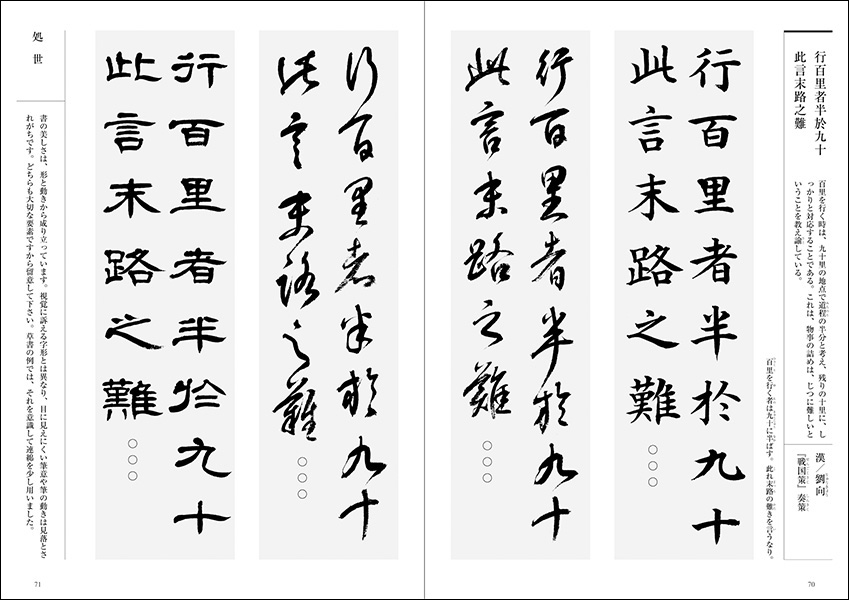 行百里者半於九十
此言末路之難
百里を行く時は、九十里の地点で道程の半分と考え、残りの十里に、し
っかりと対応することである。これは、物事の詰めは、じつに難しいと
いうことを教え諭している。
漢/劉向
『戦国策』秦策
百里を行く者は九十に半ばす。此れ末路の難きを言うなり。
行百里者半於九十
此言末路之難
○○○
行百里者半於九十
此言末路之難
○○○
70
行百里者半於九十
此言末路之難
○○○
行百里者半於九十
此言末路之難
○○○
処世
書の美しさは、形と動きから成り立っています。視覚に訴える字形とは異なり、目に見えにくい筆意や筆の動きは見落とさ
れがちです。どちらも大切な要素ですから留意して下さい。草書の例では、それを意識して連綿を少し用いました。
71